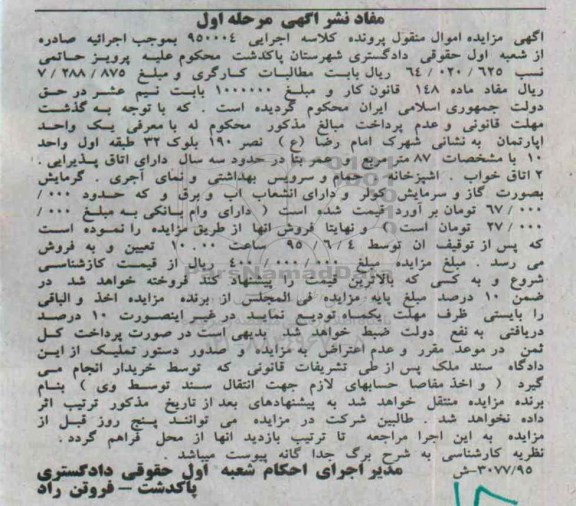 مفاد نشر اگهی مرحله اول
اگهی مزایده اموال منقول پرونده کلاسه اجرایی ۹۵۰۰۰۴ بموجب اجرائیه صادره
از شعبه اول حقوقی دادگستری شهرستان پاکدشت محکوم علیه پرویز حاتمی
نسب ۶۴/۰۲۰/۶۲۵ ریال بابت مطالبات کارگری و مبلغ ۷/۲۸۸/۸۷۵
ریال مفاد ماده ۱۴۸ قانون کار و مبلغ ۱۰۰۰۰۰۰ بابت نیم عشر در حق
دولت جمهوری اسلامی ایران محکوم گردیده است . که با توجه به گذشت
مهلت قانونی و عدم پرداخت مبالغ مذکور محکوم له با معرفی یک واحد
اپارتمان به نشانی شهرک امام رضا (ع) نصر ۱۹۰ بلوک ۳۲ طبقه اول واحد
۱۰ با مشخصات ۸۷ متر مربع و عمر بنا در حدود سه سال دارای اتاق پذیرایی .
۲ اتاق خواب . اشپزخانه . حمام و سرویس بهداشتی و نمای آجری . گرمایش
بصورت گاز و سرمایش کولر و دارای انشعاب اب و برق و که حدود ۰۰۰/
۶۷/۰۰۰ تومان بر آورد قیمت شده است ( دارای وام بانکی به مبلغ ۰۰۰/
۲۷/۰۰۰ تومان است ) و نهایتا فروش انها از طریق مزایده را نموده است
که پس از توقیف ان توسط ۹۵/۶/۴ ساعت ۱۰.۰۰ تعیین و به فروش
می رسد . مبلغ مزایده مبلغ ۴۰۰/۰۰۰/۰۰۰ ریال از قیمت کارشناسی
شروع و به کسی که بالاترین قیمت را پیشنهاد کند فروخته خواهد شد در
ضمن ۱۰ درصد مبلغ پایه مزایده فی المجلس از برنده مزایده اخذ و الباقی
را بایستی ظرف مهلت یکماه تودیع نماید در غیر اینصورت ۱۰ درصد
دریافتی به نفع دولت ضبط خواهد شد بدیهی است در صورت پرداخت کل
ثمن در موعد مقرر و عدم اعتراض به مزایده و صدور دستور تملیک از این
دادگاه سند ملک پس از طی تشریفات قانونی که توسط خریدار انجام می
گیرد ( و اخذ مفاصا حسابهای لازم جهت انتقال سند توسط وی ) بنام
برنده مزایده منتقل خواهد شد به پیشنهادهای بعد از تاریخ مذکور ترتیب اثر
داده نخواهد شد . طالبین شرکت در مزایده می توانند پنج روز قبل از
مزایده به این اجرا مراجعه تا ترتیب بازدید انها از محل فراهم گردد .
نظریه کارشناسی به شرح برگ جدا گانه پیوست میباشد .
۳۰۷۷/۹۵-ش مدیر اجرای احکام شعبه اول حقوقی دادگستری
پاکدشت – فروتن راد
ParsNamadData